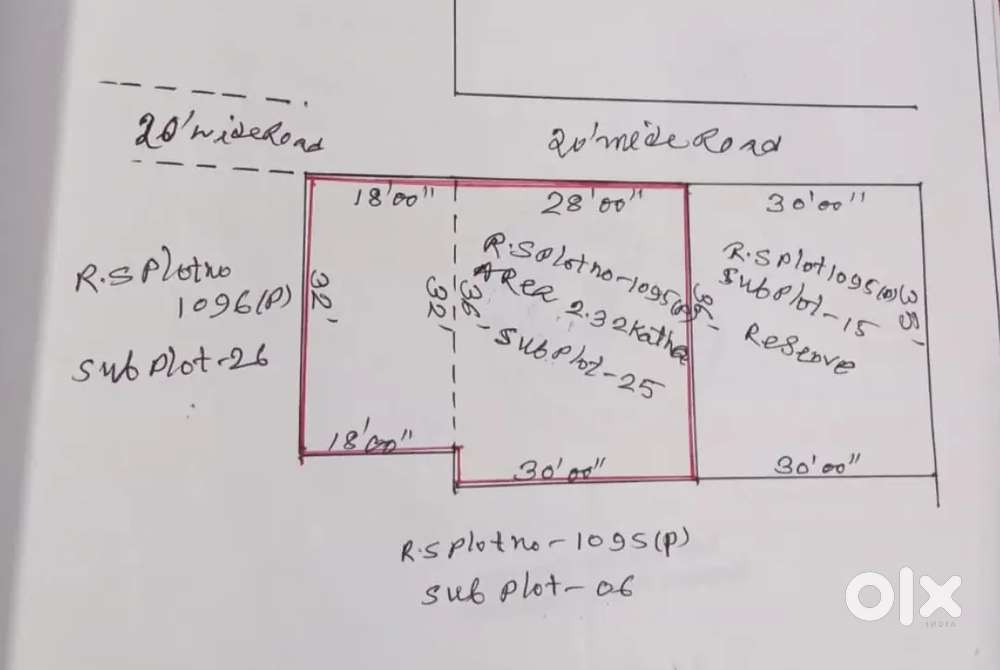 20' wide Road
20' wide Road
18'00"
28'00"
30'00"
R.S Plot no
1096(P)
Sub Plot-26
32'
32'
36'
R.S Plot no-1095(P)
AREA 2.32 Katha
Sub Plot-25
36'
R.S Plot 1095(P)
Sub Plot-15
Reserve
35'
18'00"
30'00"
30'00"
R.S Plot no-1095(P)
Sub Plot-06
olx
INDIA